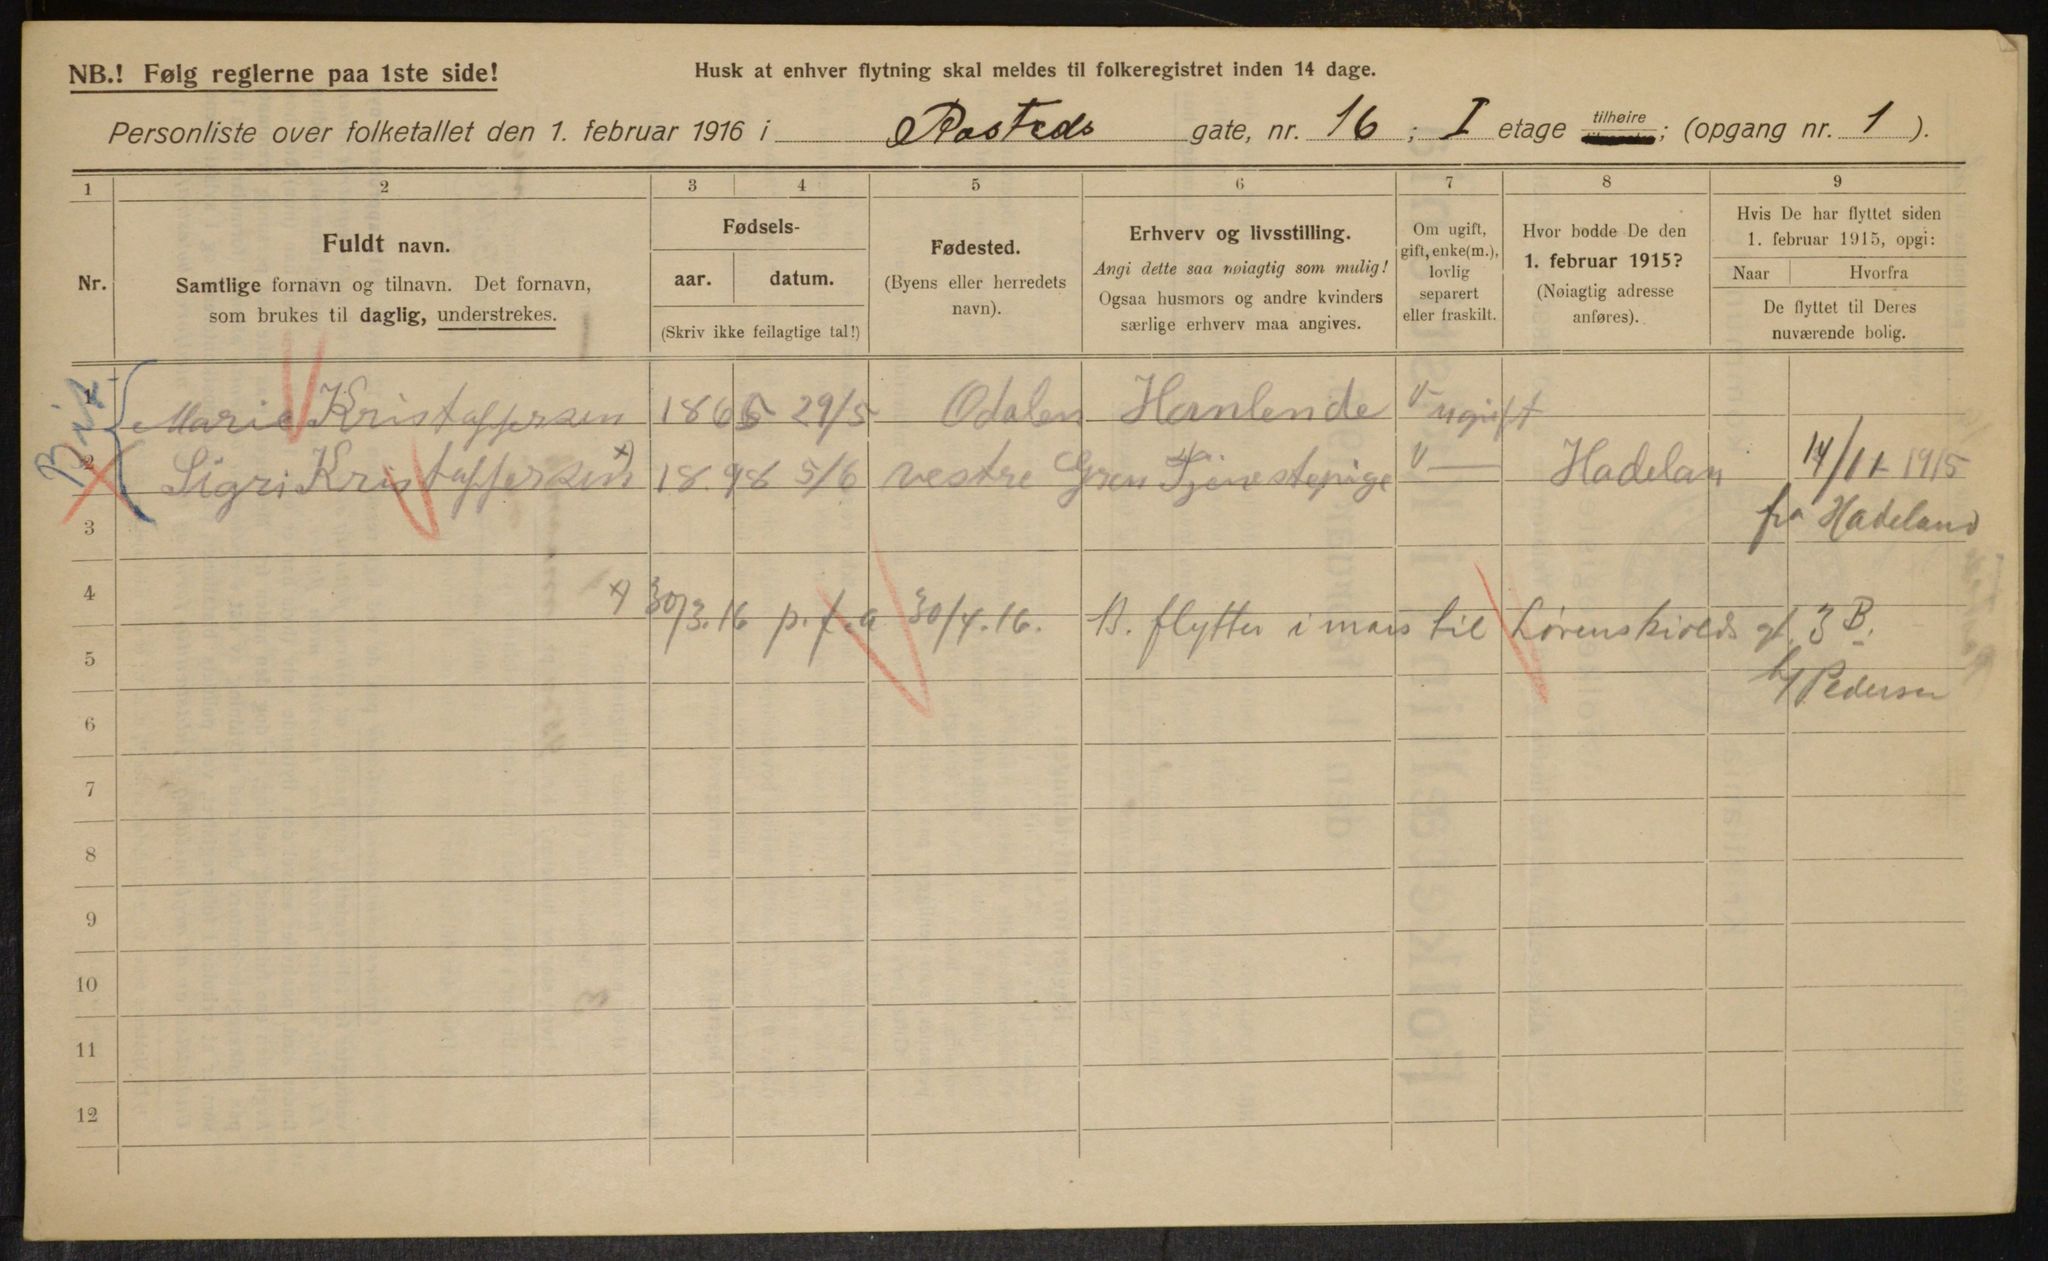 NB.! Følg reglerne paa 1ste side!
Husk at enhver flytning skal meldes til folkeregistret inden 14 dage.
Personliste over folketallet den 1. februar 1916 i Rosteds gate, nr. 16 ; I etage tilhøire ; (opgang nr. 1 ).
1 2 3 4 5 6 7 8 9
Nr.
Fuldt navn.
Samtlige fornavn og tilnavn. Det fornavn,
som brukes til daglig, understrekes.
Fødsels-
aar. datum.
(Skriv ikke feilagtige tal!)
Fødested.
(Byens eller herredets
navn).
Erhverv og livsstilling.
Angi dette saa nøiagtig som mulig!
Ogsaa husmors og andre kvinders
særlige erhverv maa angives.
Om ugift,
gift, enke(m.),
lovlig
separert
eller fraskilt.
Hvor bodde De den
1. februar 1915?
(Nøiagtig adresse
anføres).
Hvis De har flyttet siden
1. februar 1915, opgi:
Naar Hvorfra
De flyttet til Deres
nuværende bolig.
1 Marie Kristaffersen 1865 29/5 Odalen Hanlende ugift
2 Sigri Kristaffersen x) 1898 5/6 vestre Gren Tjenestepige " — Hadelan 14/11 1915
3 fra Hadeland
4 x) 30/3.16 p.f.a 30/4.16. B. flytter i mars til Lørenskiolds gt. 3 B.
5 b/ Pedersen
6
7
8
9
10
11
12